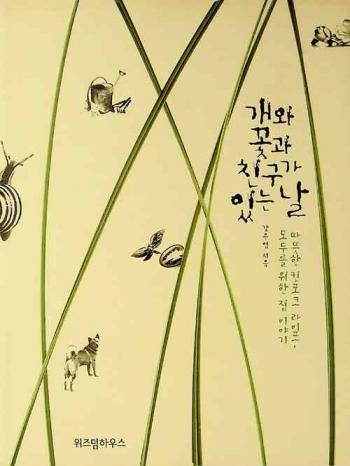 개와
꽃과
친구가
있는 날
지음
따뜻한 킨포크 라이프,
모두를 위한 집 이야기
위즈덤하우스